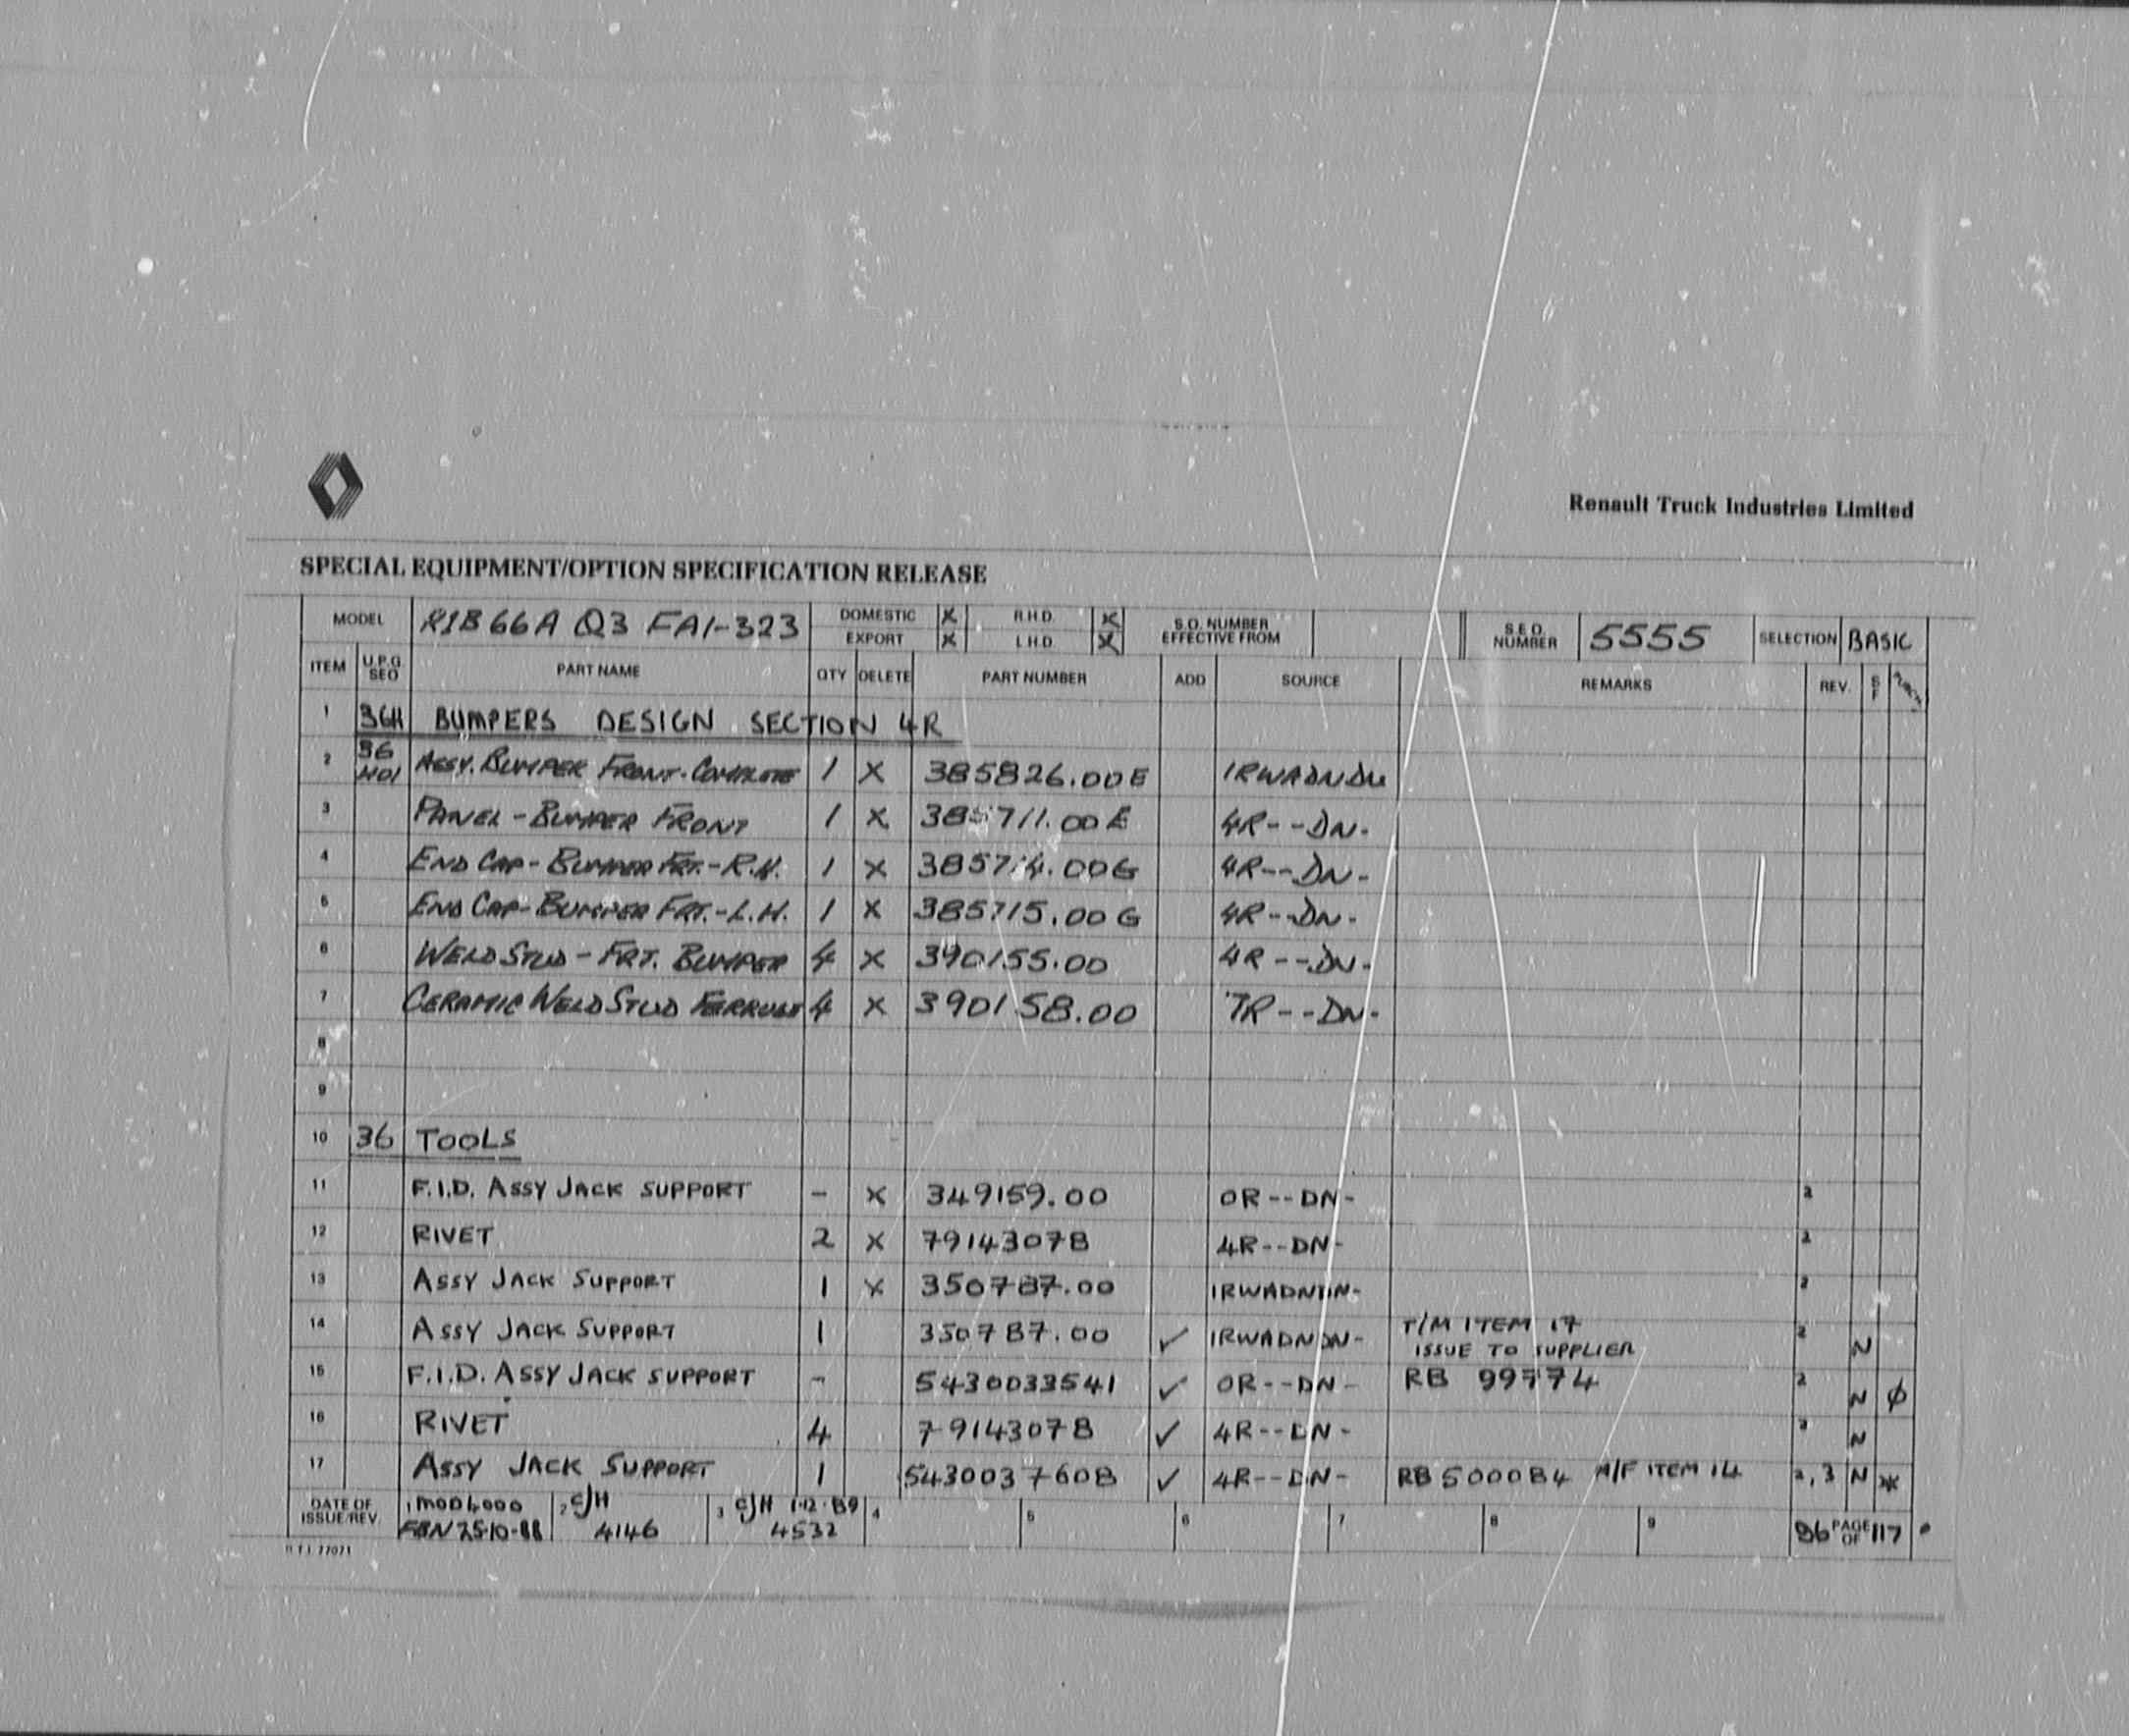 Renault Truck Industries Limited
SPECIAL EQUIPMENT/OPTION SPECIFICATION RELEASE
MODEL R1B66A Q3 FA1-323 DOMESTIC X R.H.D. X S.O. NUMBER EFFECTIVE FROM S.E.O. NUMBER 5555 SELECTION BASIC
EXPORT X L.H.D. X
ITEM U.P.G. SEQ PART NAME QTY DELETE PART NUMBER ADD SOURCE REMARKS REV. S F
1 36H BUMPERS DESIGN SECTION 4R
2 36 H01 ASSY. BUMPER FRONT. COMPLETE 1 X 385826.00E 1RWADNDN
3 PANEL - BUMPER FRONT 1 X 385711.00E 4R--DN-
4 END CAP - BUMPER FRT. - R.H. 1 X 385714.00G 4R--DN-
5 END CAP - BUMPER FRT. - L.H. 1 X 385715.00G 4R--DN-
6 WELD STUD - FRT. BUMPER 4 X 390155.00 4R--DN-
7 CERAMIC WELD STUD FERRULE 4 X 390158.00 7R--DN-
8
9
10 36 TOOLS
11 F.I.D. ASSY JACK SUPPORT - X 349159.00 0R--DN- 2
12 RIVET 2 X 79143078 4R--DN- 2
13 ASSY JACK SUPPORT 1 X 350787.00 1RWADNDN- 2
14 ASSY JACK SUPPORT 1 350787.00 ✓ 1RWADNDN- T/M ITEM 17 ISSUE TO SUPPLIER 2 N
15 F.I.D. ASSY JACK SUPPORT - 5430033541 ✓ 0R--DN- RB 99774 2 N φ
16 RIVET 4 79143078 ✓ 4R--DN- 2 N
17 ASSY JACK SUPPORT 1 5430037608 ✓ 4R--DN- RB 500084 M/F ITEM 14 2,3 N *
DATE OF ISSUE/REV. 1 MOD4000 2 CJH 3 CJH 1.12.89 4 5 6 7 8 9 PAGE 86 OF 117
25-10-88 4146 4532
R.T.I. 77071